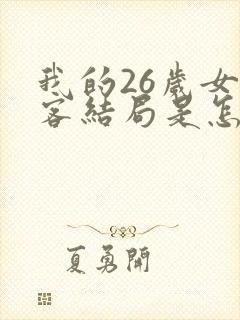 我的26歲女
客結局是怎
夏勇開